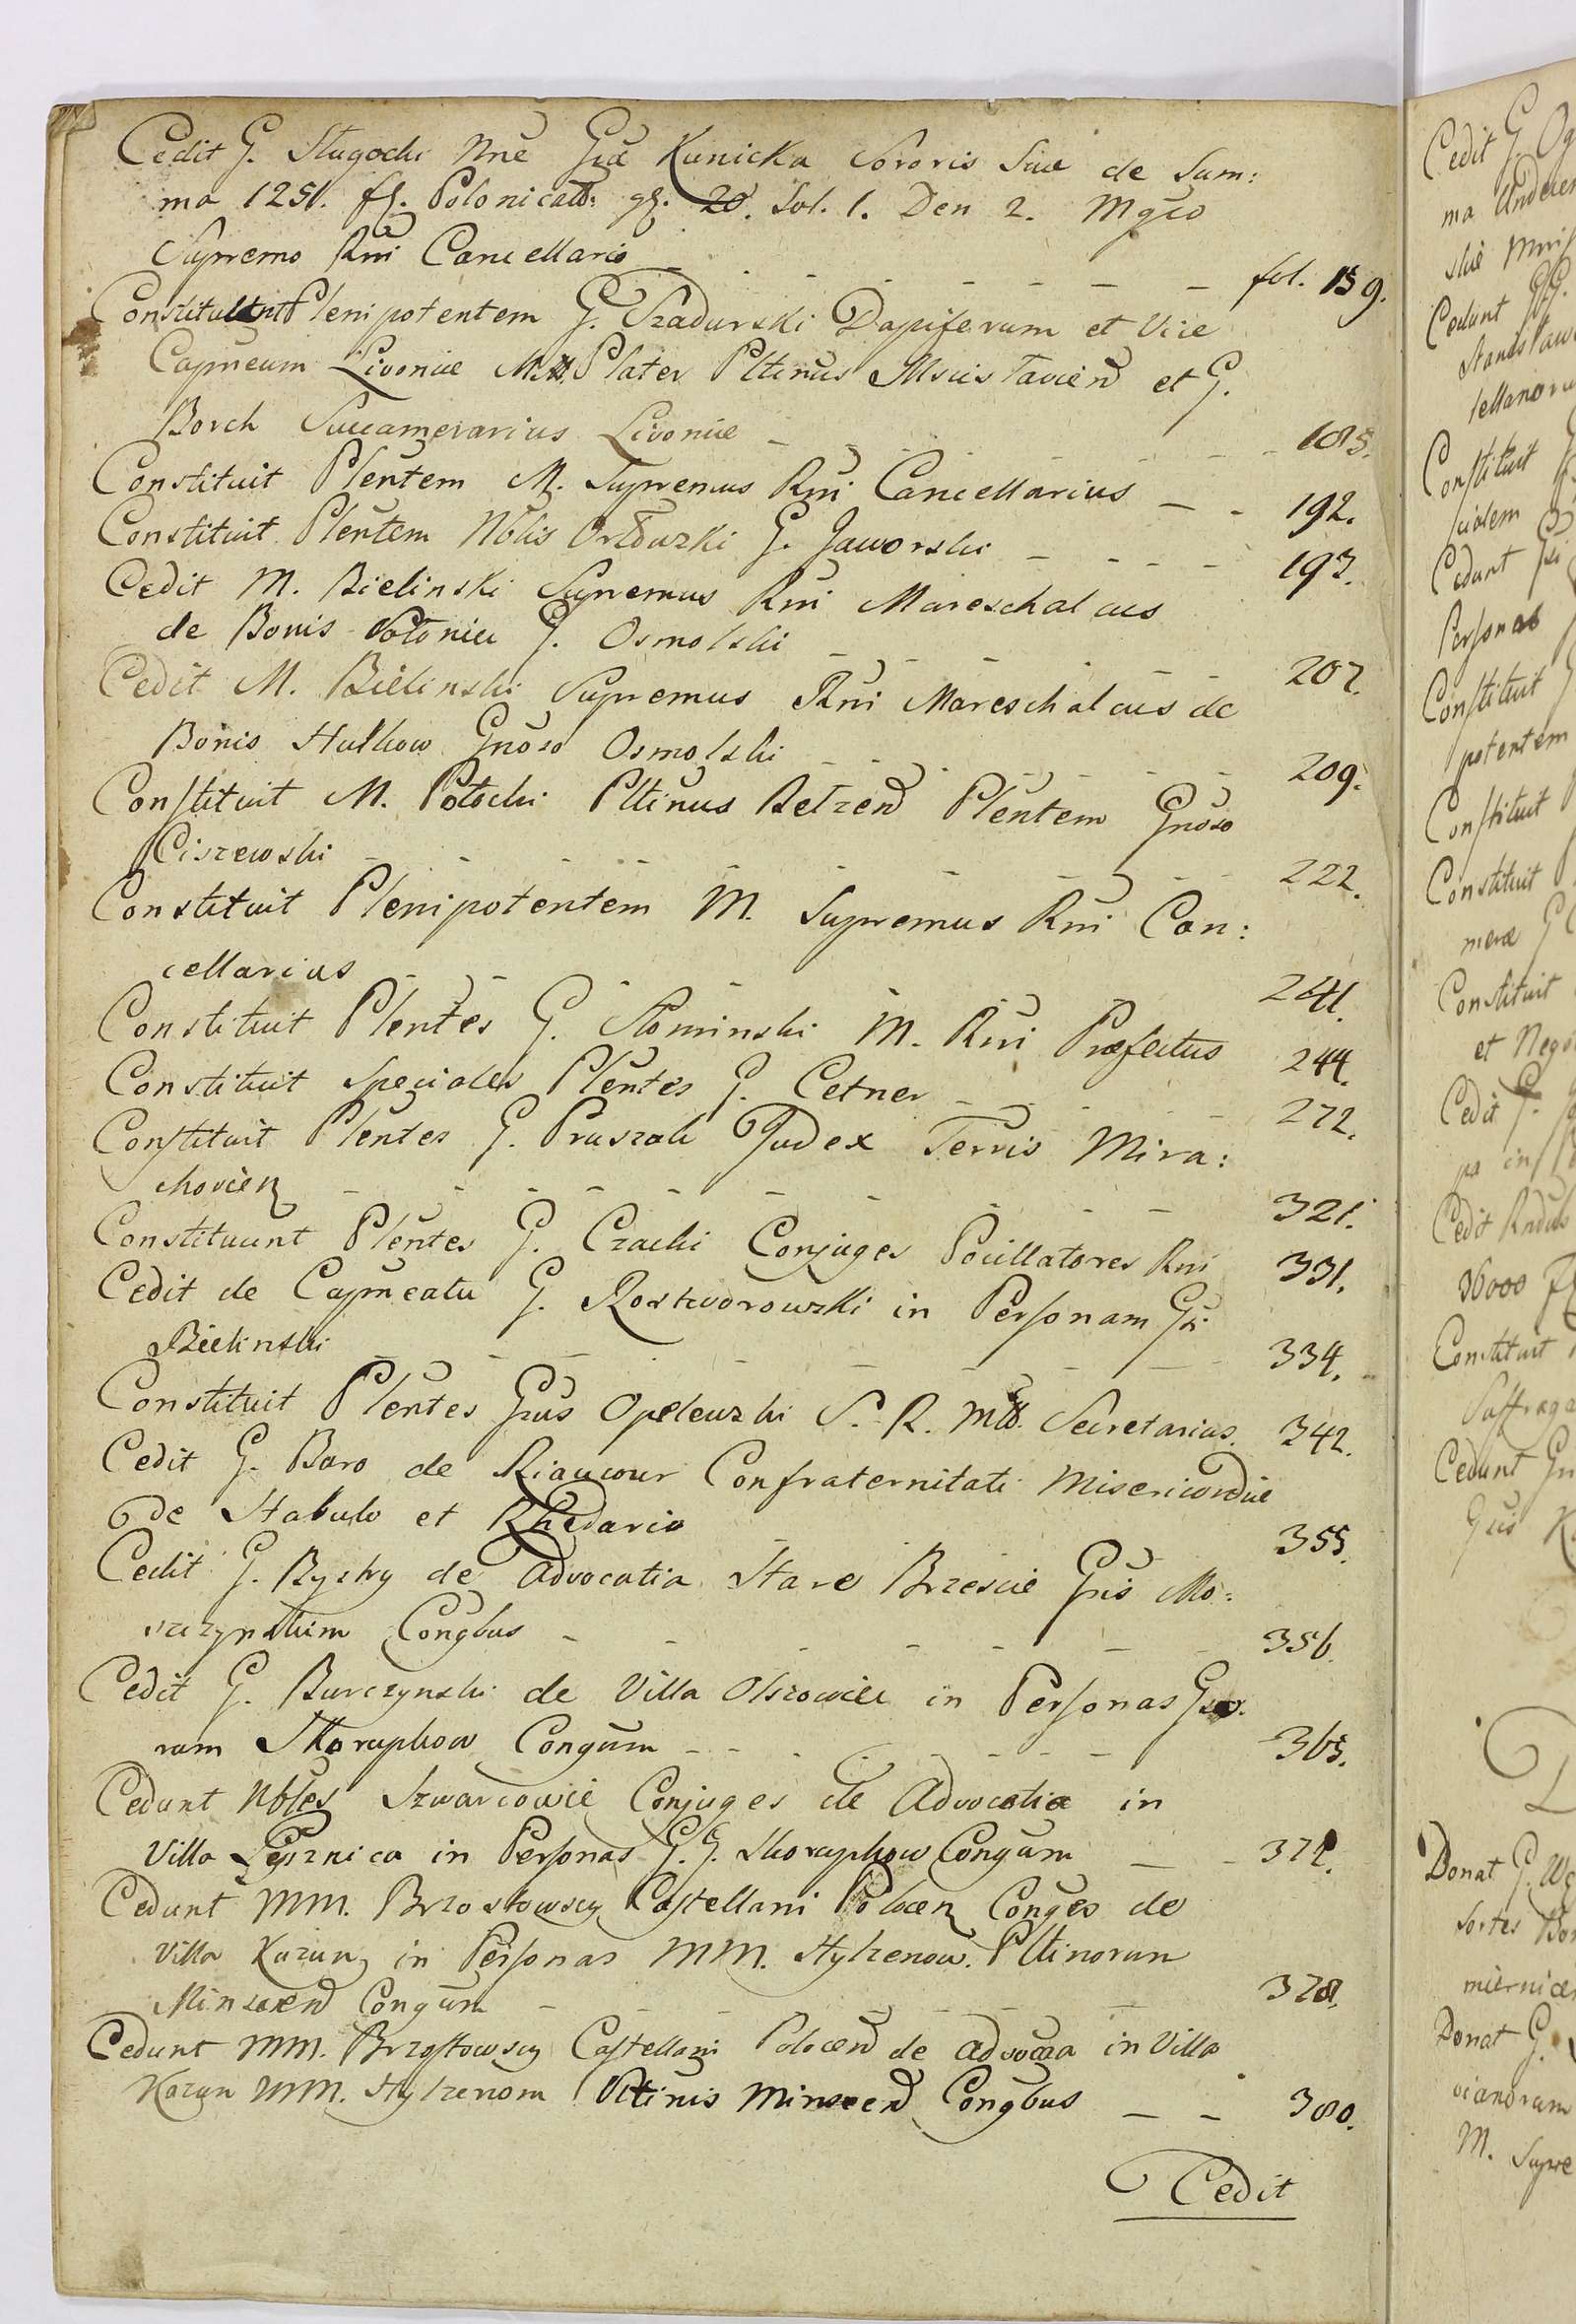 Cedit G. Sługocki Nne Gsa Kunicka Sororis Suae de Sum:
ma 1251. fl. Polonical: gr. 20. Sol. 1. Den 2. Mgco
Supremo Rni Cancellario fol. 159.
Constituunt Plenipotentem G. Szadurski Dapiferum et Vice
Capneum Livoniae M. Plater Pltinus Mscislavien et G.
Borch Succamerarius Livoniae 185.
Constituit Plentem M. Supremus Rni Cancellarius 192.
Constituit Plentem Nblis G. Jaworski 193.
Cedit M. Bielinski Supremus Rni Mareschalcus
de Bonis G. Osmolski 207.
Cedit M. Bielinski Supremus Rni Mareschalcus de
Bonis Hutkow Gnoso Osmolski 209.
Constituit M. Potocki Pltinus Belzen Plentem Gnoso
Ciszewski 222.
Constituit Plenipotentem M. Supremus Rni Can:
cellarius 241.
Constituit Plentes G. Słominski M. Rni Praefectus 244.
Constituit Speciales Plentes G. Cetner 272.
Constituit Plentes G. Pruszak Judex Terris Mira:
chovien 321.
Constituunt Plentes G. Czacki Conjuges Pocillatores Rni 331.
Cedit de Capneatu G. Roztworowski in Personam Gsi
Bielinski 334.
Constituit Plentes Gsus Opelewski S. R. Mtis Secretarius. 342.
Cedit G. Baro de Riaucour Confraternitati Misericordiae
de Stabulo et Rhedario 355.
Cedit G. Ryszky de Advocatia Stare Brzescie Gsis Mo:
szczynskim Congbus 356.
Cedit G. Burczynski de Villa Olszowiec in Personas Gso:
rum Skorupkow Congum 365.
Cedunt Nbles Szwarcowie Conjuges de Advocatia in
Villa in Personas G. G. Skorupkow Congum 372.
Cedunt MM. Brzostowscy Castellani Polocen Conges de
Villa Kazun in Personas MM. Hylzenow. Pltinorum
Minscen Congum 378.
Cedunt MM. Brzostowscy Castellani Polocen de Advocaa in Villa
Kazun MM. Hylzenom Pltinis Minscen Congbus 380.
Cedit
Cedit G Og
ma
Cedunt GG.
Stanisław
tellanoru
Constituit
cialem
Cedunt Gsi
Personas
Constituit
potentem
Constituit
Constituit
merae G
Constituit
et Nego
Cedit G.
pa in
Cedit
36000
Constituit
Suffraga
Cedunt Gn
Gsis K
D
Donat G. We
Sortes Bon
miernicz
Donat G.
cianorum
M. Supre